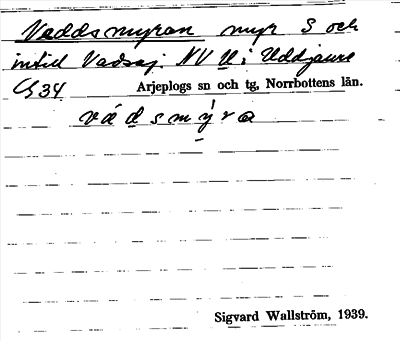 Vaddsmyran myr S och
intill Vadsaj. NV U i Uddjaure
34 Arjeplogs sn och tg, Norrbottens län.
vá d s m ý r a
Sigvard Wallström, 1939.